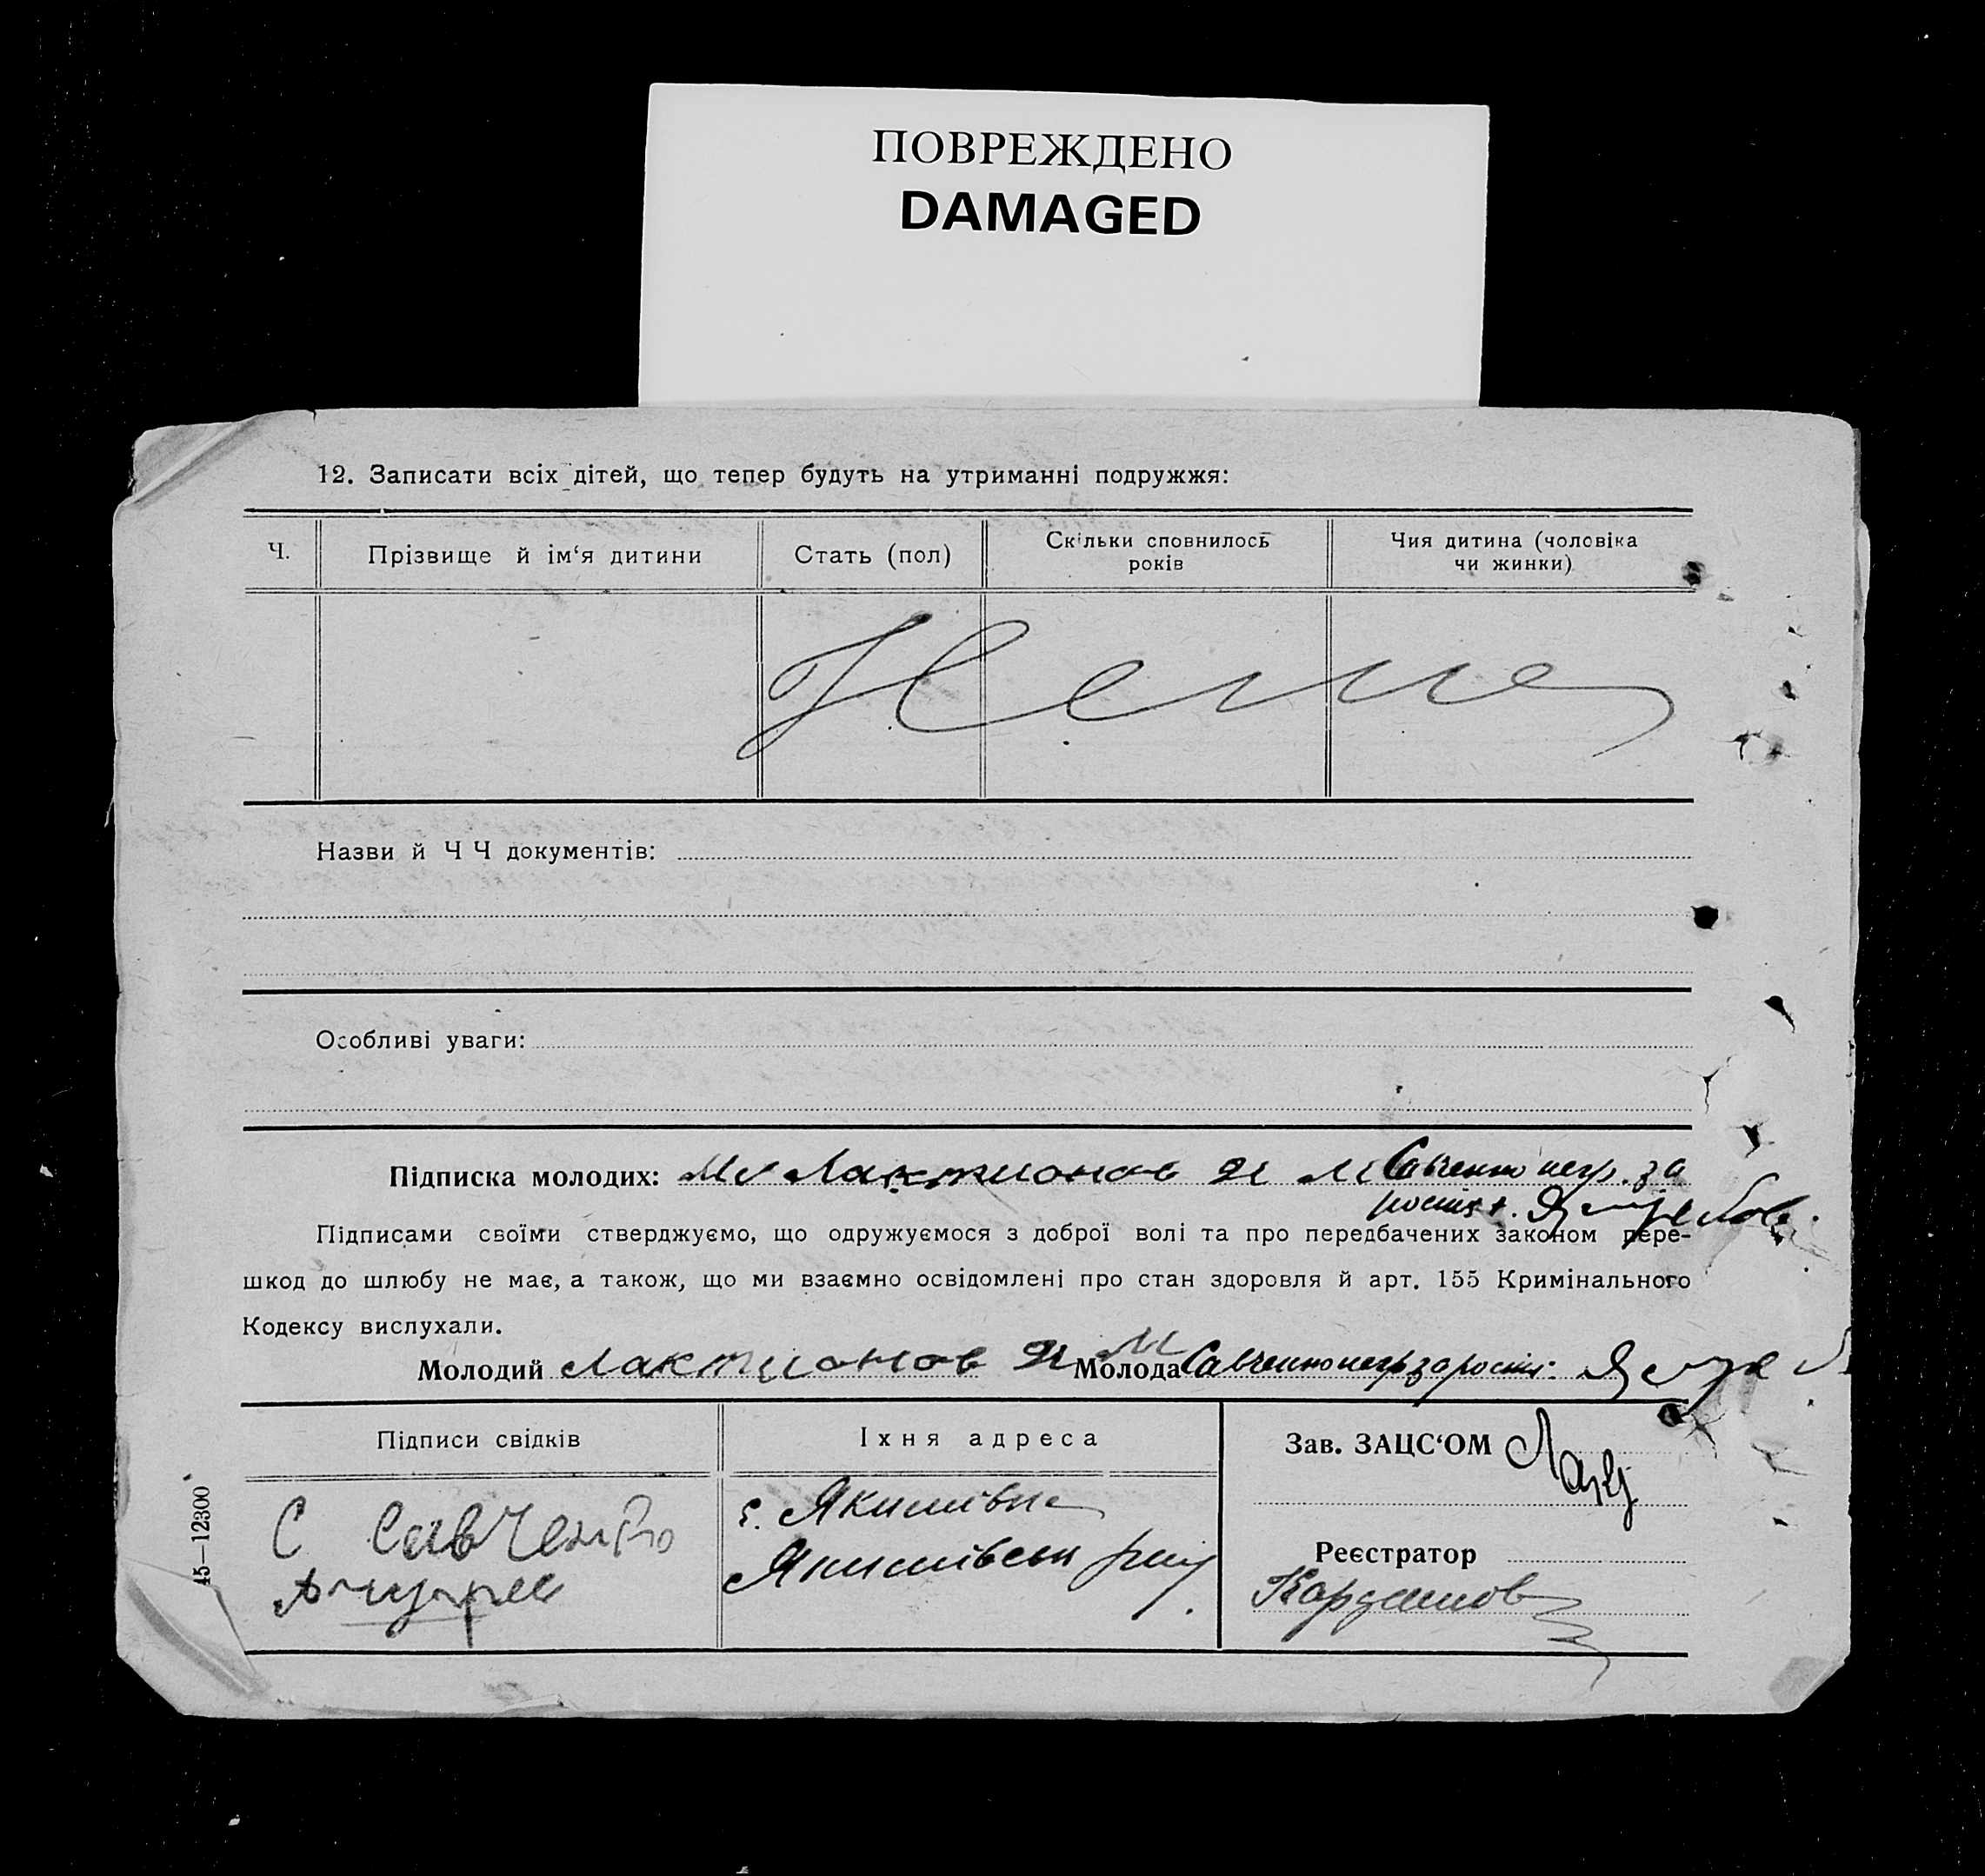 ПОВРЕЖДЕНО
DAMAGED
12. Записати всіх дітей, що тепер будуть на утриманні подружжя:
Ч.
Прізвище й ім‘я дитини
Стать (пол)
Скільки сповнилось
років
Чия дитина (чоловіка
чи жинки)
Нема
Назви й Ч Ч документів:
Особливі уваги:
Підписка молодих: Лактионов Савченко негр. за
Підписами своїми стверджуємо, що одружуємося з доброї волі та про передбачених законом пере-
шкод до шлюбу не має, а також, що ми взаємно освідомлені про стан здоровля й арт. 155 Кримінального
Кодексу вислухали.
Молодий Лактионов Молода Савченко негр за
Підписи свідків
Їхня адреса
Зав. ЗАЦС‘ОМ
С Савченко
с. Якимівка
Якимівськ
Реєстратор
45—12300